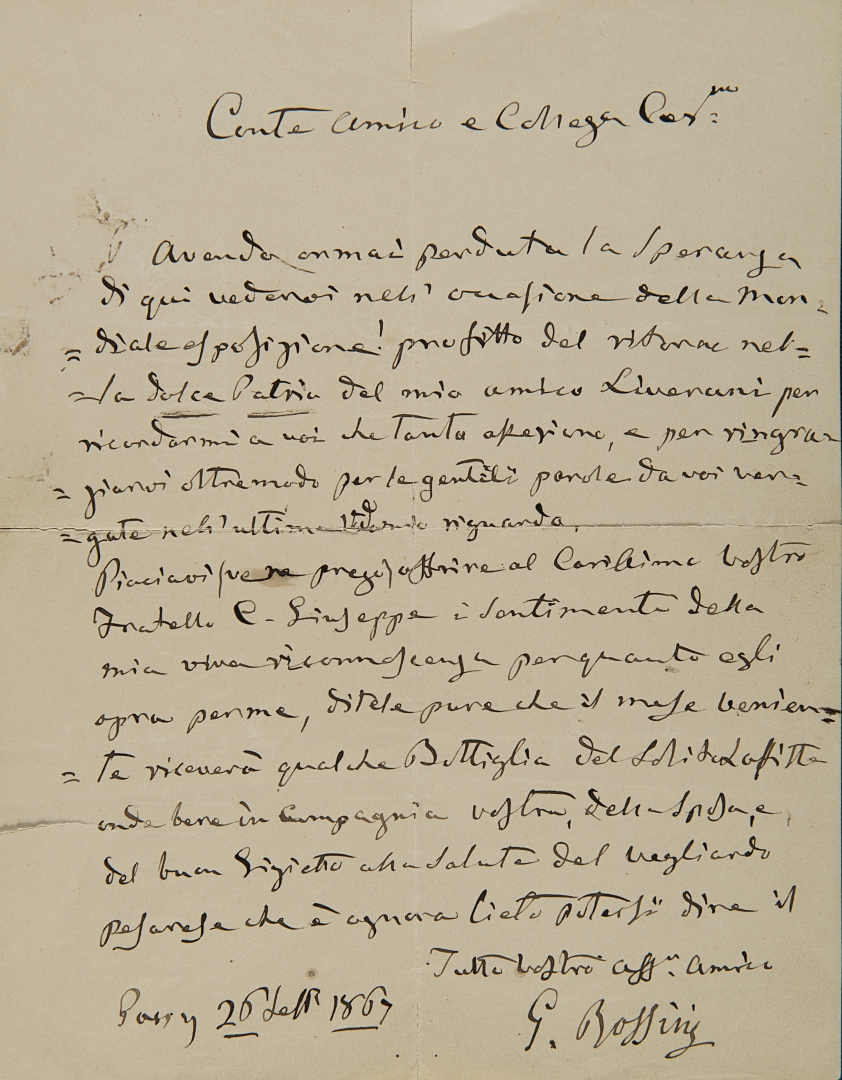 Conte Amico e Collega Car.mo
Avendo ormai perduta la Speranza
di qui vedervi nell' occasione della Mon=
=diale esposizione! profitto del ritorno nel=
=la dolce Patria del mio amico Liverani per
ricordarmi a voi che tanto affeziono, e per ringra=
=ziarvi oltremodo per le gentili parole da voi ver=
=gate nell' ultima riguardo.
Piaciavi (ve ne prego) offrire al Carissimo Vostro
Fratello C. Giuseppe i Sentimenti della
mia viva riconnoscenza per quanto egli
opra per me, ditele pure che il mese venien=
=te riceverà qualche Bottiglia del Solito Lafitte
onde bere in Compagnia vostra, della Sposa, e
del buon Gigietto alla Salute del Vegliardo
pesarese che è ognora lieto potersi dire il
Tutto Vostro aff.o Amico
G. Rossini
Passy 26 Sett 1867